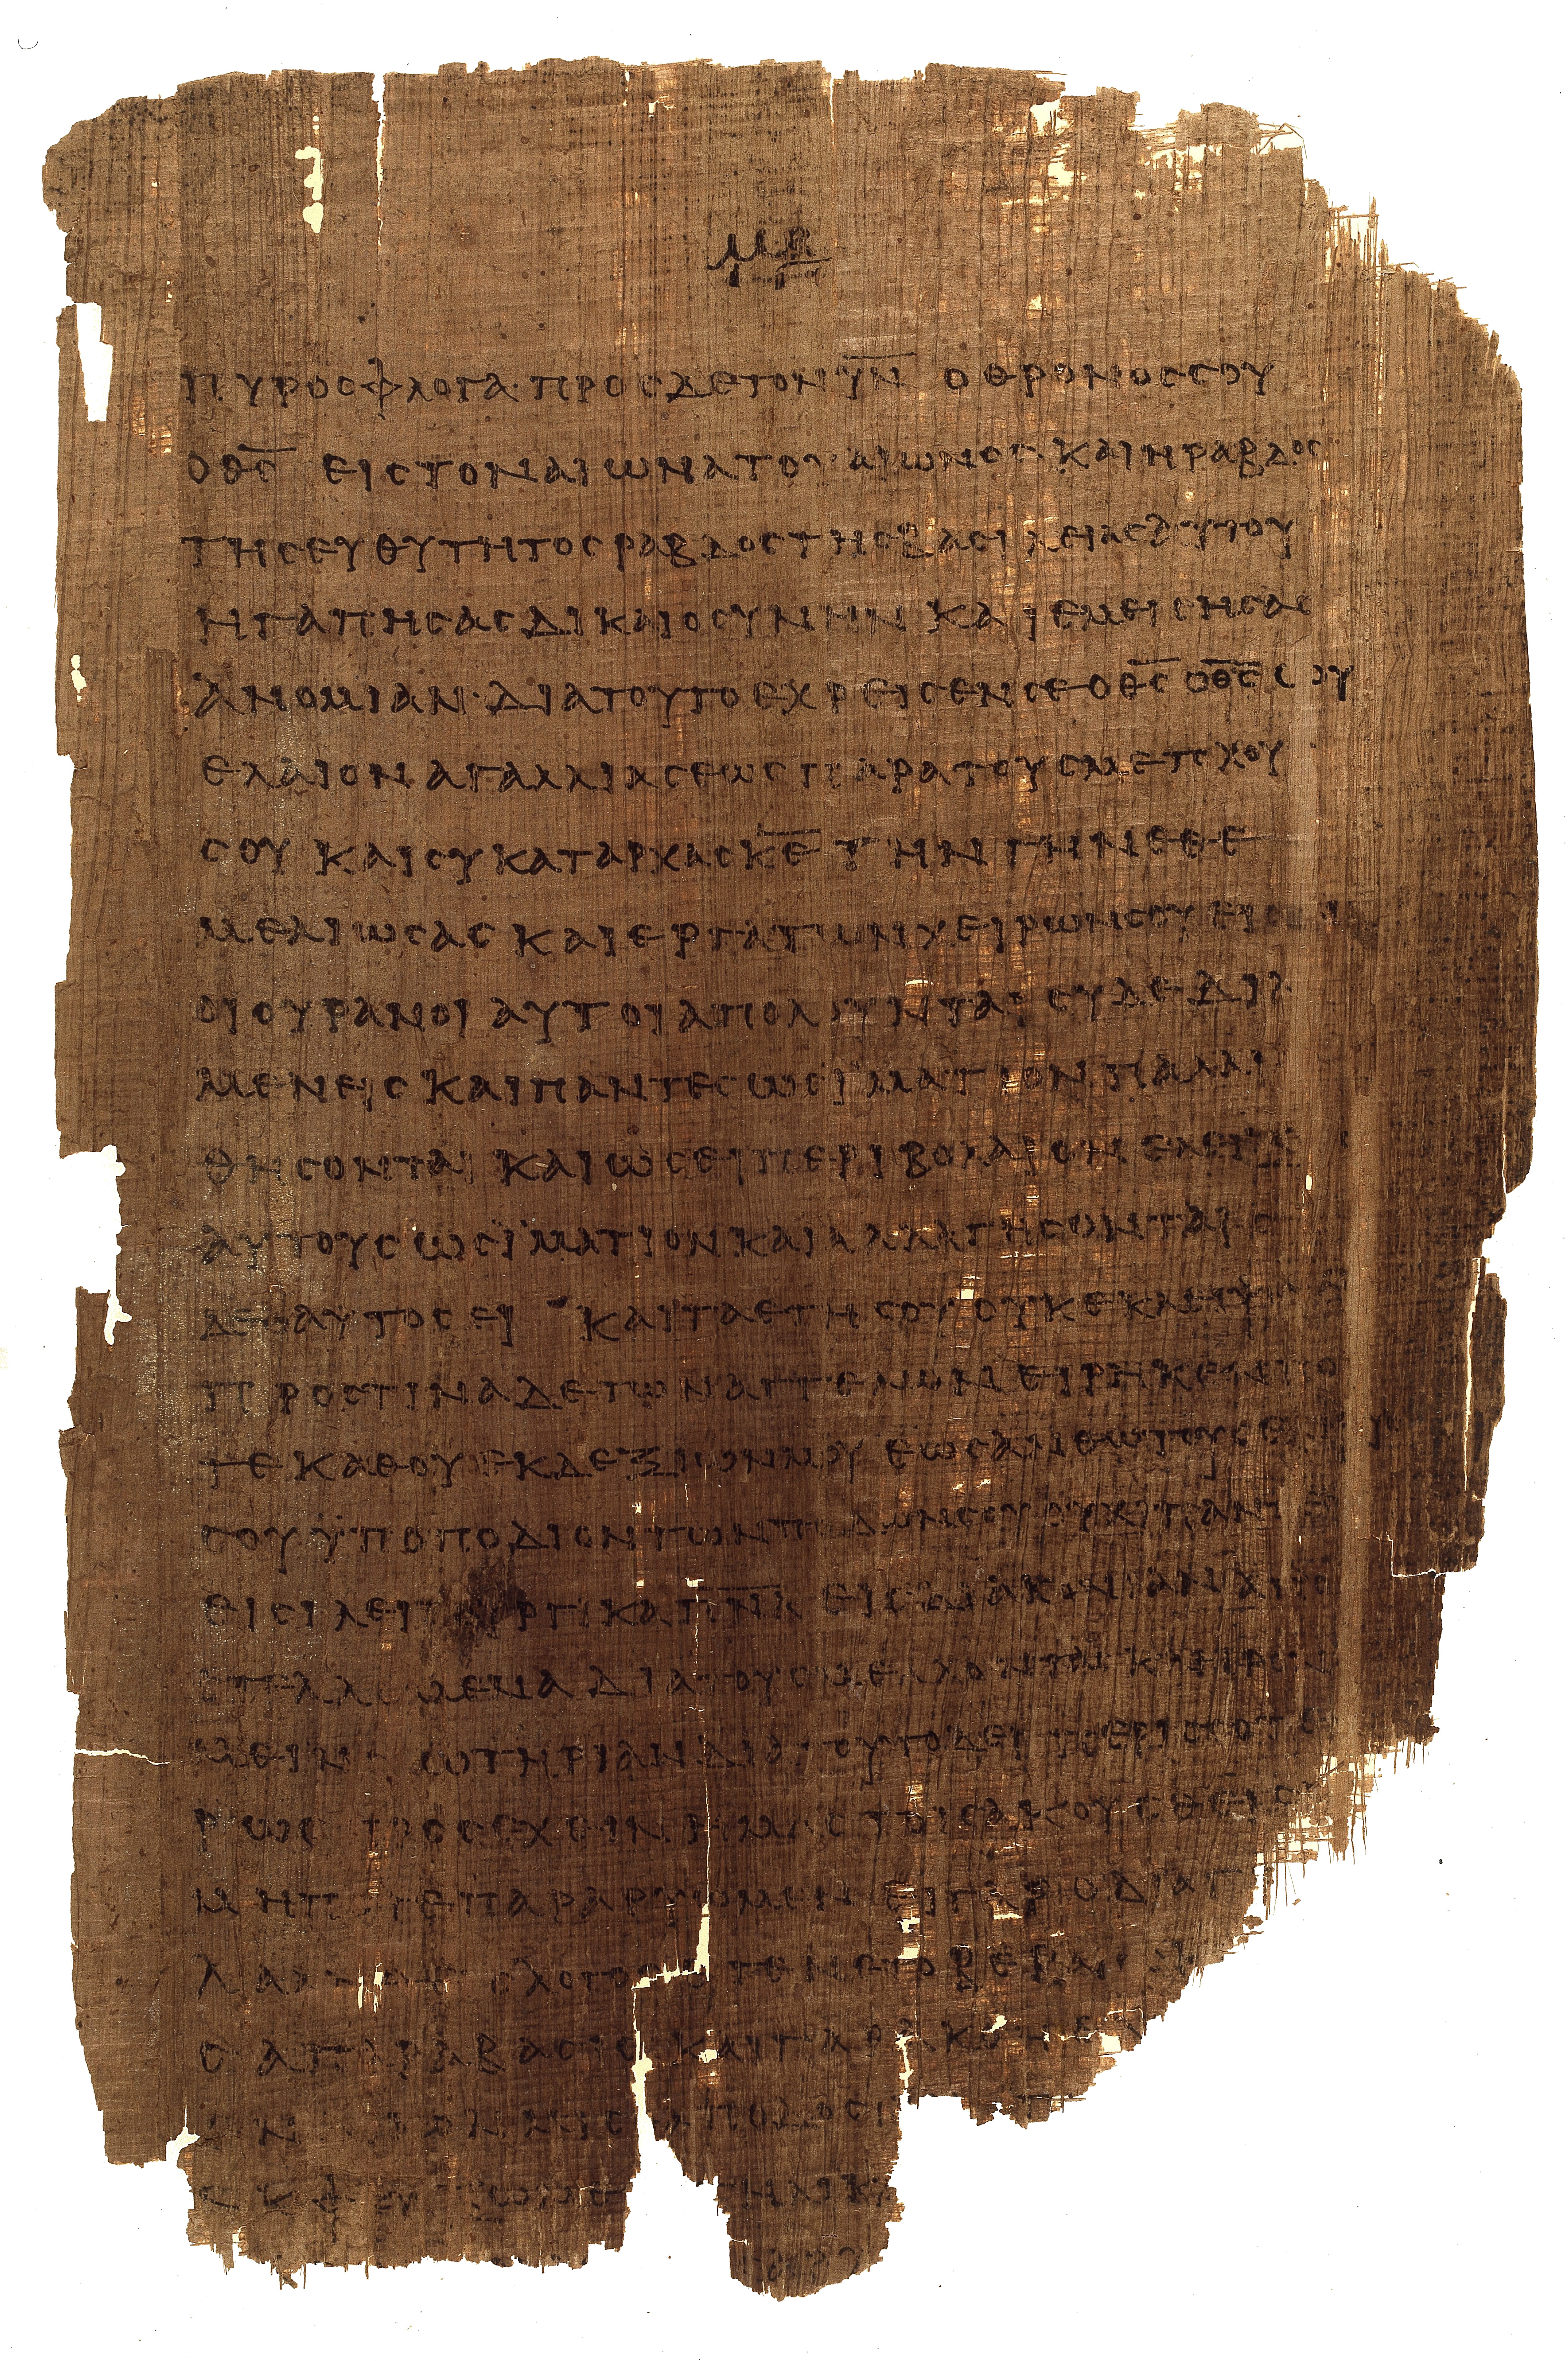 μβ
πυροσφλογα·προσδετονυ̅ν̅ οθρονοσσου
οθ̅σ̅ ειστοναιωνατουαιωνοσ·καιηραβδοσ
τησευθυτητοσραβδοστησβασιλειασαυτου
ηγαπησασδικαιοσυνην καιεμεισησασ
ανομιαν·διατουτοεχρεισενσεοθ̅σ̅ οθ̅σ̅σου
ελαιοναγαλλιασεωσπαρατουσμετοχου
σου καισυκαταρχασκ̅ε̅ τηνγηνεθε
μελιωσασ καιεργατωνχειρωνσουεισι
οιουρανοι αυτοιαπολουνται συδεδια
μενεισ καιπαντεσωσϊματιονπαλαι
θησονται καιωσειπεριβολαιονελειξ
αυτουσωσϊματιονκαιαλλαγησονται σ
δεοαυτοσει καιταετησουουκεκλειψ
προστιναδετωναγγελωνειρηκενπο
τεκαθουεκδεξιωνμου εωσανθωτουσε
σουϋποποδιοντωνποδωνσουουχιπαντεσ
εισιλειτουργικαπ̅ν̅α̅ εισδιακονιαν
διατουσμελλοντασκληρονο
μειν σωτηριανδιατουτοδειπερισσοτε
ρωσ προσεχεινημαστοισακουσθεισ
μηποτεπαραρυωμεν ειγαροδιαγ
λογοσεγενετοβεβαιοσ
σαπαραβασισ καιπαρακοηε
τηλικ